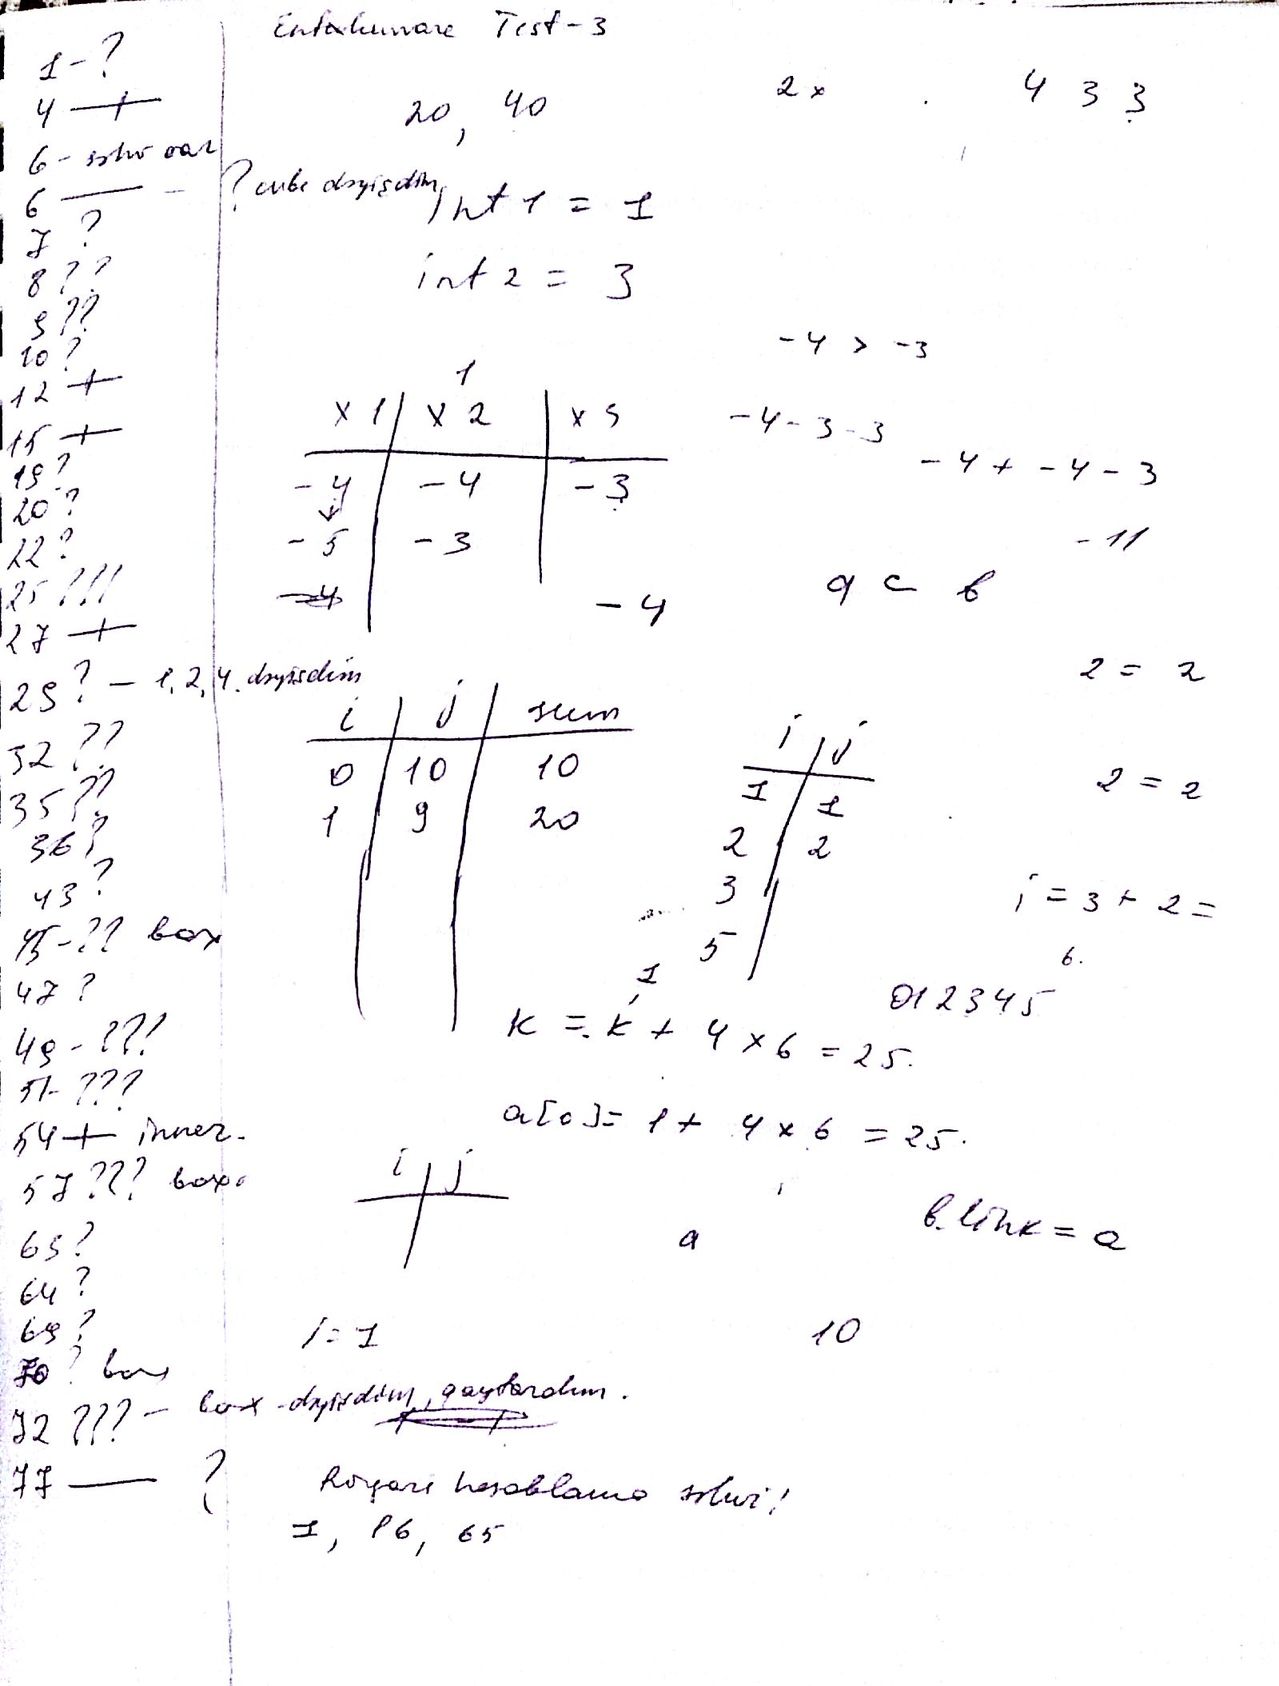 Test-3
1-?
4 +
6 - səhv var
6 — - ? dəyişdim
7 ?
8 ??
9 ??
10 ?
12 +
15 +
19 ?
20 ?
22 ?
25 ???
27 +
29 ? - 1, 2, 4. dəyişdim
32 ??
35 ??
36 ?
43 ?
45 - ?? box
47 ?
49 - ???
51 - ???
54 + inner.
57 ??? box
63 ?
64 ?
69 ?
70 ? box
72 ??? - box - dəyişdim, qaytardım.
77 — ?
20, 40
2x
4 3 3
int 1 = 1
int 2 = 3
-4 > -3
1
x 1 x 2 x 3
-4 -4 -3
-5 -3
-4
-4 - 3 - 3
-4 + -4 - 3
-11
a ⊂ b
i j sum
0 10 10
1 9 20
i j
1 1
2 2
3
5
2 = 2
2 = 2
i = 3 + 2 =
6.
012345
1
k = k + 4 x 6 = 25.
a[0] = 1 + 4 x 6 = 25.
i j
a
b.link = a
i = 1
10
hesablama səhvi!
1, 16, 65